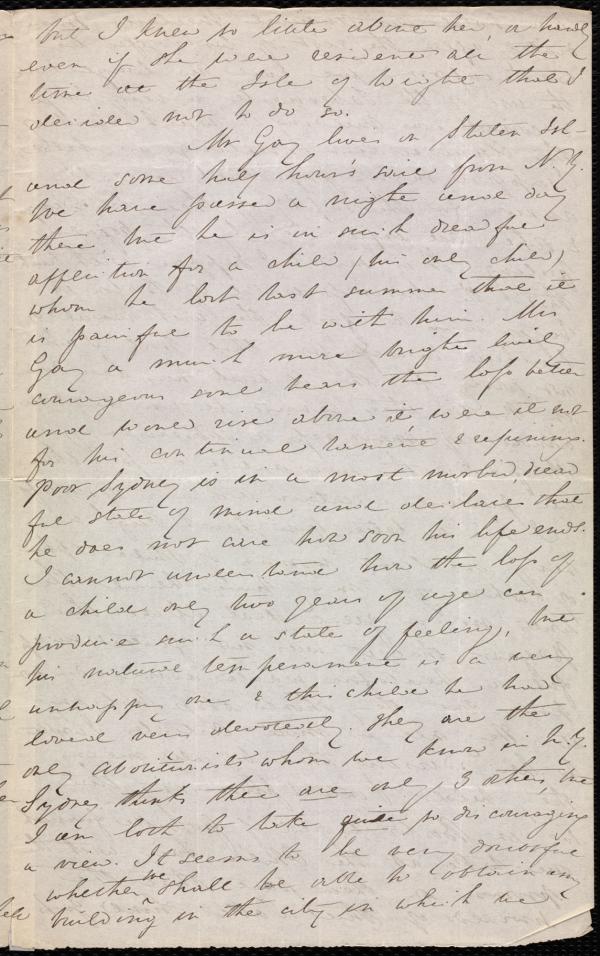 but I knew so little about her, or hardly
even if she were resident all the
time at the Isle of Wight that I
decided not to do so.
Mr Gay lives on Staten Isl-
and some half hour's sail from N.Y.
We have passed a night and day
there but he is in such dreadful
affliction for a child (his only child)
whom he lost last summer that it
is painful to be with him. Mrs
Gay a much more bright lively
courageous soul bears the loss better
and would rise above it were it not
for his continual lament & repining.
Poor Sydney is in a most morbid, dread
ful state of mind and declares that
he does not care how soon his life ends.
I cannot understand how the loss of
a child only two years of age can
produce such a state of feeling, but
his natural temperament is a very
unhappy one & this child he had
loved very devotedly. They are the
only abolitionists whom we know in N.Y.
Sydney thinks there are only 3 others, but
I am loth to take quite so discouraging
a view. It seems to be very doubtful
whether we shall be able to obtain any
building in the city in which we